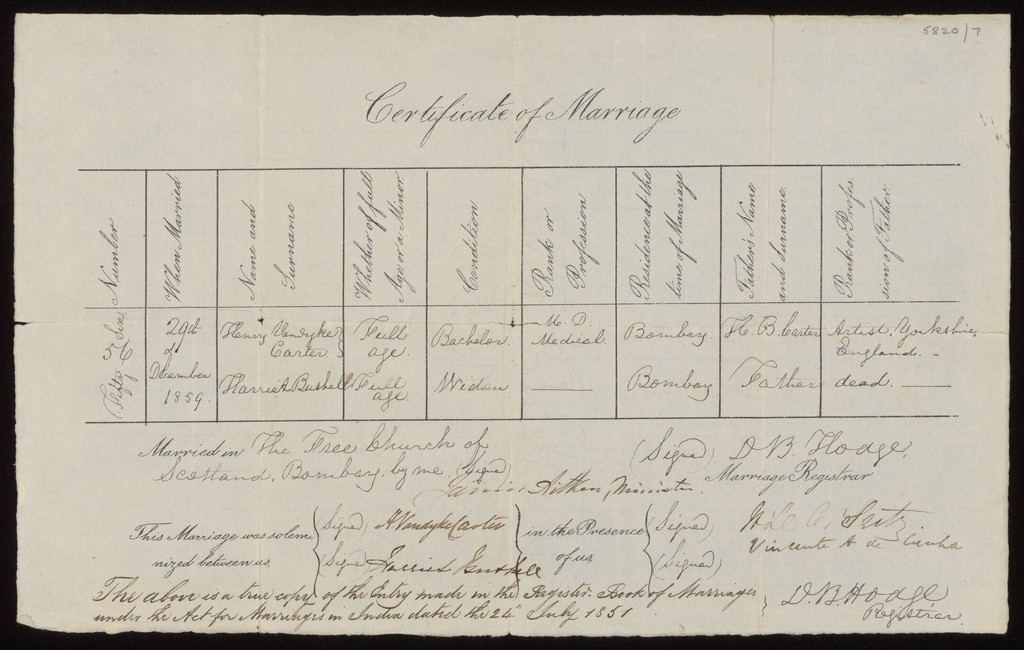 5820/7
Certificate of Marriage
Number
When Married
Name and Surname
Whether of full Age or a Minor
Condition
Rank or Profession
Residence at the time of Marriage
Father's Name and Surname
Rank or Profession of Father
Fifty
29th of December 1859.
Henry Vandyke Carter
Full age.
Bachelor
M.D. Medical.
Bombay.
H. B. Carter
Artist, Yorkshire, England. -
Harriet Bushell
Full age.
Widow
Bombay
Father
dead.
Married in The Free Church of
Scotland, Bombay, by me (Signed)
James Aitken, Minister.
(Signed) D B. Hodge,
Marriage Registrar
This Marriage was solemnized between us,
(Signed) H Vandyke Carter
(Signed) Harriet Bushell
in the Presence of us,
(Signed)
Vincente A de Cunha
(Signed)
The above is a true copy of the Entry made in the Register Book of Marriages
under the Act for Marriages in India dated the 24th July 1851
D. B Hodge
Registrar.